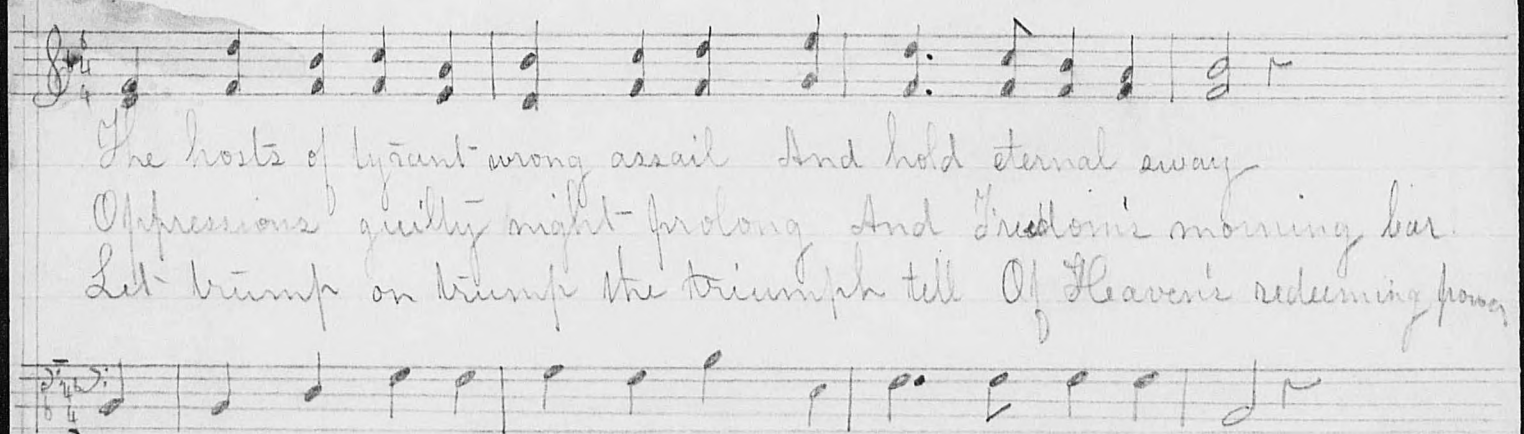 The hosts of tyrant wrong assail And hold eternal sway
Oppressions guilty night prolong And Freedom's morning bar.
Let trump on trump the triumph tell Of Heaven's redeeming power